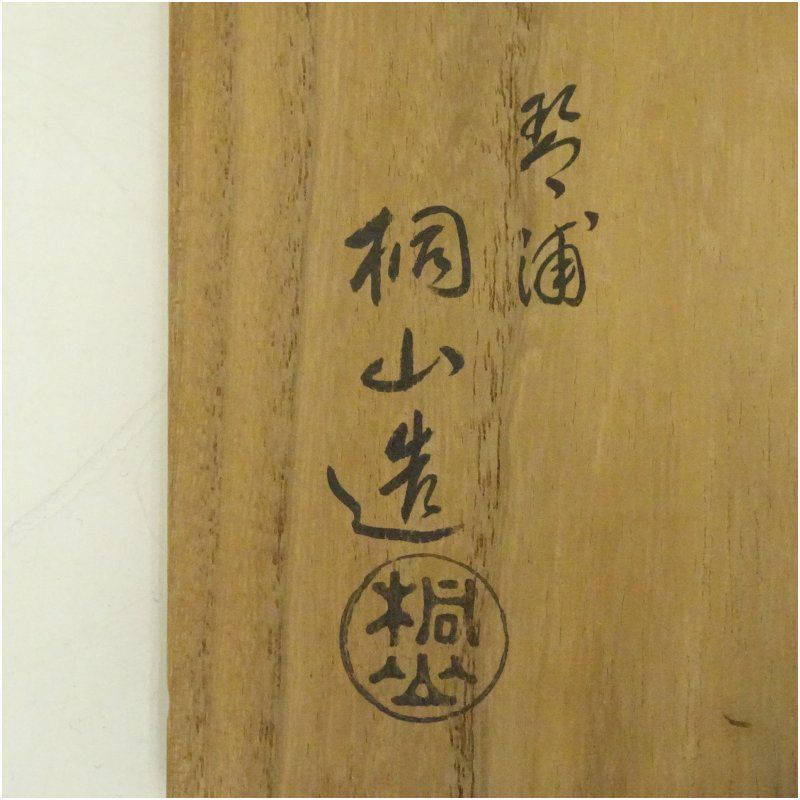 琴浦
桐山造
桐山